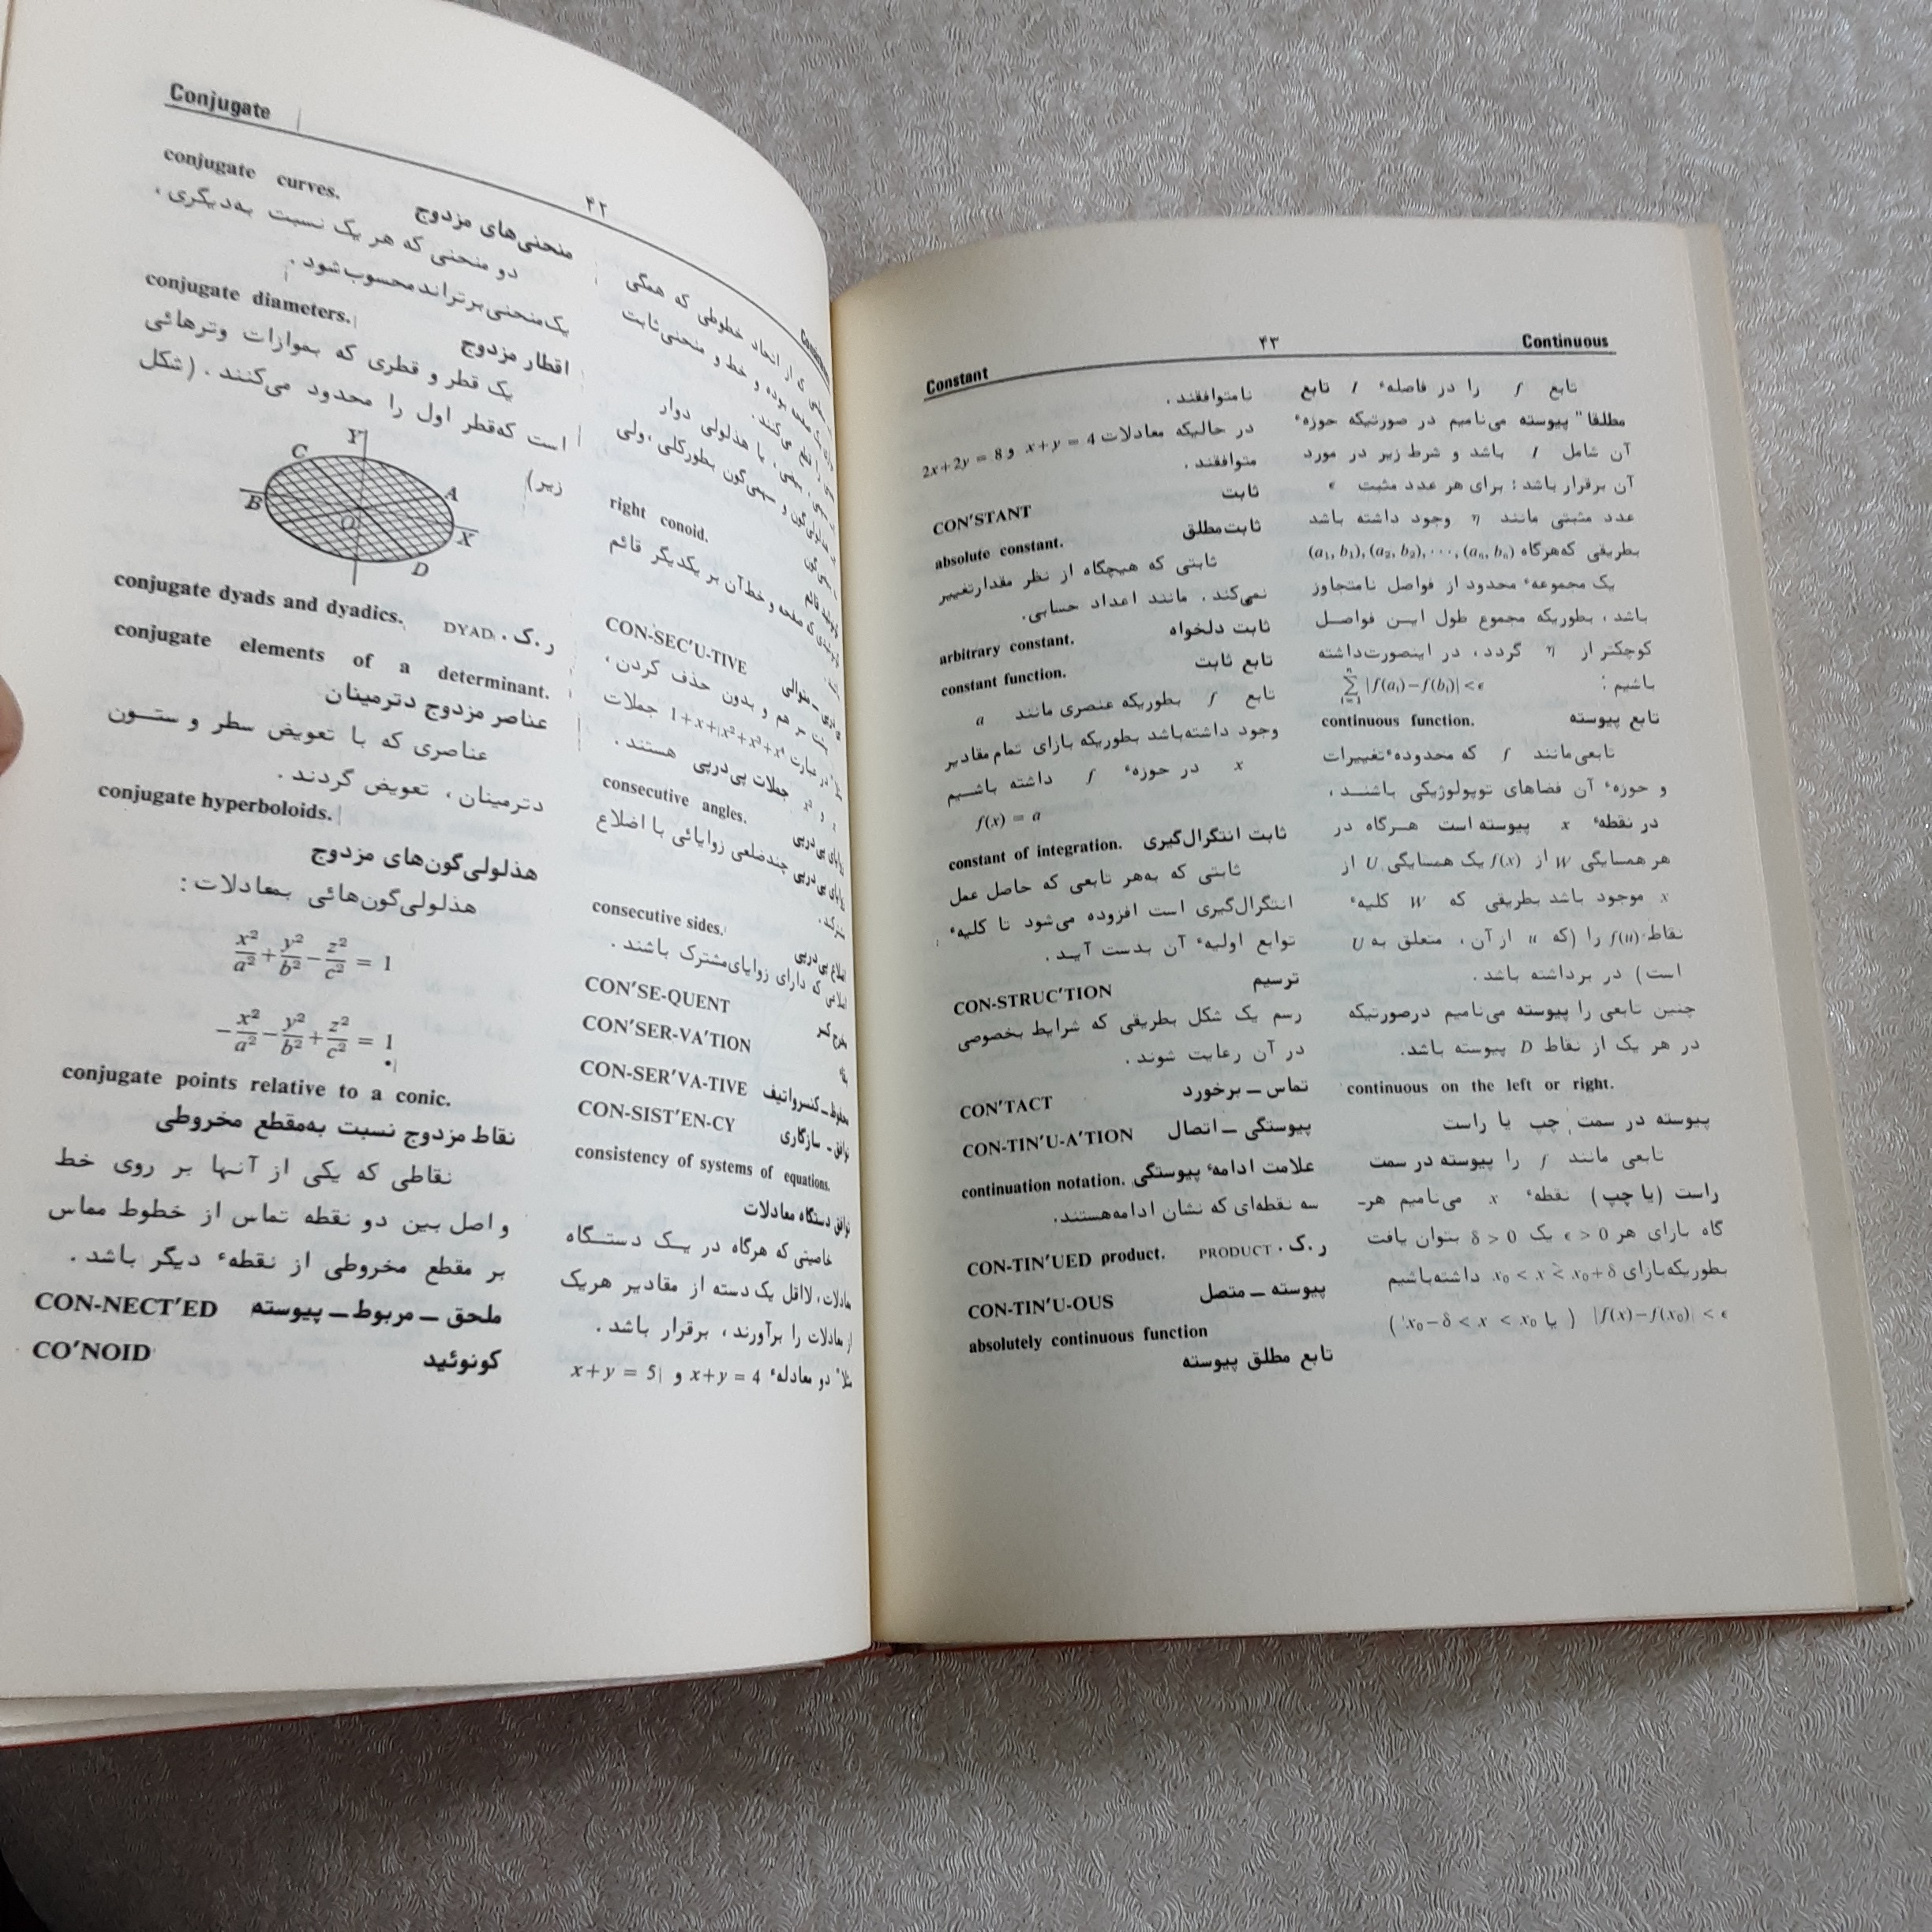 Conjugate
۴۲
conjugate curves.
منحنی‌های مزدوج
دو منحنی که هر یک نسبت به‌دیگری،
یک‌منحنی‌برتراند محسوب‌شود.
conjugate diameters.
اقطار مزدوج
یک قطر و قطری که بموازات وترهائی
است که‌قطر اول را محدود می‌کنند. (شکل
زیر)
Y
C
A
B
O
X
D
conjugate dyads and dyadics.
ر.ک. DYAD
conjugate elements of a determinant.
عناصر مزدوج دترمینان
عناصری که با تعویض سطر و ستون
دترمینان، تعویض گردند.
conjugate hyperboloids.
هذلولی‌گون‌های مزدوج
هذلولی‌گون‌هائی بمعادلات:
x²/a² + y²/b² − z²/c² = 1
−x²/a² − y²/b² + z²/c² = 1
conjugate points relative to a conic.
نقاط مزدوج نسبت به‌مقطع مخروطی
نقاطی که یکی از آنها بر روی خط
واصل بین دو نقطه تماس از خطوط مماس
بر مقطع مخروطی از نقطهٔ دیگر باشد.
CON-NECT′ED ملحق ــ مربوط ــ پیوسته
CO′NOID کونوئید
که از اتحاد خطوطی که همگی
صفحه بوده و خط و منحنی‌ثابت
را قطع می‌کنند.
یا هذلولی دوار
سهمی‌گون بطورکلی، ولی
right conoid.
که صفحه و خط‌آن بر یکدیگر قائم
CON-SEC′U-TIVE
متوالی
سر هم و بدون حذف کردن،
در عبارت 1+x+x²+x³+x⁴ جملات
جملات پی‌درپی هستند.
consecutive angles.
پی‌درپی
چندضلعی زوایائی با اضلاع
consecutive sides.
اضلاع پی‌درپی
که دارای زوایای‌مشترک باشند.
CON′SE-QUENT
CON′SER-VA′TION
CON-SER′VA-TIVE کنسرواتیف
CON-SIST′EN-CY توافق ـ سازگاری
consistency of systems of equations.
توافق دستگاه معادلات
خاصیتی که هرگاه در یک دستگاه
معادلات، لااقل یک دسته از مقادیر هریک
از معادلات را برآورند، برقرار باشد.
مثلا" دو معادلهٔ x+y = 4 و x+y = 5
Constant
۴۳
Continuous
نامتوافقند.
در حالیکه معادلات x+y = 4 و 2x+2y = 8
متوافقند.
CON′STANT ثابت
absolute constant. ثابت‌مطلق
ثابتی که هیچگاه از نظر مقدارتغییر
نمی‌کند. مانند اعداد حسابی.
arbitrary constant. ثابت دلخواه
constant function. تابع ثابت
تابع f بطوریکه عنصری مانند a
وجود داشته‌باشد بطوریکه بازای تمام‌مقادیر
x در حوزهٔ f داشته باشیم
f(x) = a
constant of integration. ثابت انتگرال‌گیری
ثابتی که به‌هر تابعی که حاصل عمل
انتگرال‌گیری است افزوده می‌شود تا کلیهٔ
توابع اولیهٔ آن بدست آید.
CON-STRUC′TION ترسیم
رسم یک شکل بطریقی که شرایط بخصوصی
در آن رعایت شوند.
CON′TACT تماس ــ برخورد
CON-TIN′U-A′TION پیوستگی ــ اتصال
continuation notation. علامت ادامهٔ پیوستگی
سه نقطه‌ای که نشان ادامه‌هستند.
CON-TIN′UED product. ر.ک. PRODUCT
CON-TIN′U-OUS پیوسته ــ متصل
absolutely continuous function
تابع مطلق پیوسته
تابع f را در فاصلهٔ I تابع
مطلقا" پیوسته می‌نامیم در صورتیکه حوزهٔ
آن شامل I باشد و شرط زیر در مورد
آن برقرار باشد: برای هر عدد مثبت ε
عدد مثبتی مانند η وجود داشته باشد
بطریقی که‌هرگاه (a₁, b₁), (a₂, b₂), ···, (aₙ, bₙ)
یک مجموعهٔ محدود از فواصل نامتجاوز
باشد، بطوریکه مجموع طول این فواصل
کوچکتر از η گردد، در اینصورت‌داشته
باشیم: Σⁿᵢ₌₁ |f(aᵢ)−f(bᵢ)| < ε
continuous function. تابع پیوسته
تابعی‌مانند f که محدودهٔ‌تغییرات
و حوزهٔ آن فضاهای توپولوژیکی باشند،
در نقطهٔ x پیوسته است هرگاه در
هر همسایگی W از f(x) یک همسایگی U از
x موجود باشد بطریقی که W کلیهٔ
نقاط f(u) را (که u از آن، متعلق به U
است) در برداشته باشد.
چنین تابعی را پیوسته می‌نامیم درصورتیکه
در هر یک از نقاط D پیوسته باشد.
continuous on the left or right.
پیوسته در سمت چپ یا راست
تابعی مانند f را پیوسته در سمت
راست (یا چپ) نقطهٔ x می‌نامیم هر-
گاه بازای هر ε > 0 یک δ > 0 بتوان یافت
بطوریکه‌بازای x₀ < x < x₀+δ داشته‌باشیم
|f(x)−f(x₀)| < ε (یا x₀−δ < x < x₀)